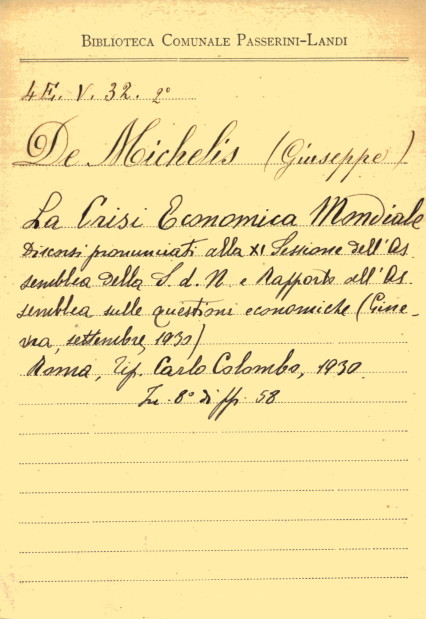 BIBLIOTECA COMUNALE PASSERINI-LANDI
4E. V. 32. 2º
De Michelis (Giuseppe)
La Crisi Economica Mondiale
Discorsi pronunciati alla XI Sessione dell'As-
semblea della S. d. N. e Rapporto all'As-
semblea sulle questioni economiche (Gine-
vra, settembre, 1930)
Roma, Tip. Carlo Colombo, 1930.
In 8º di pp. 58